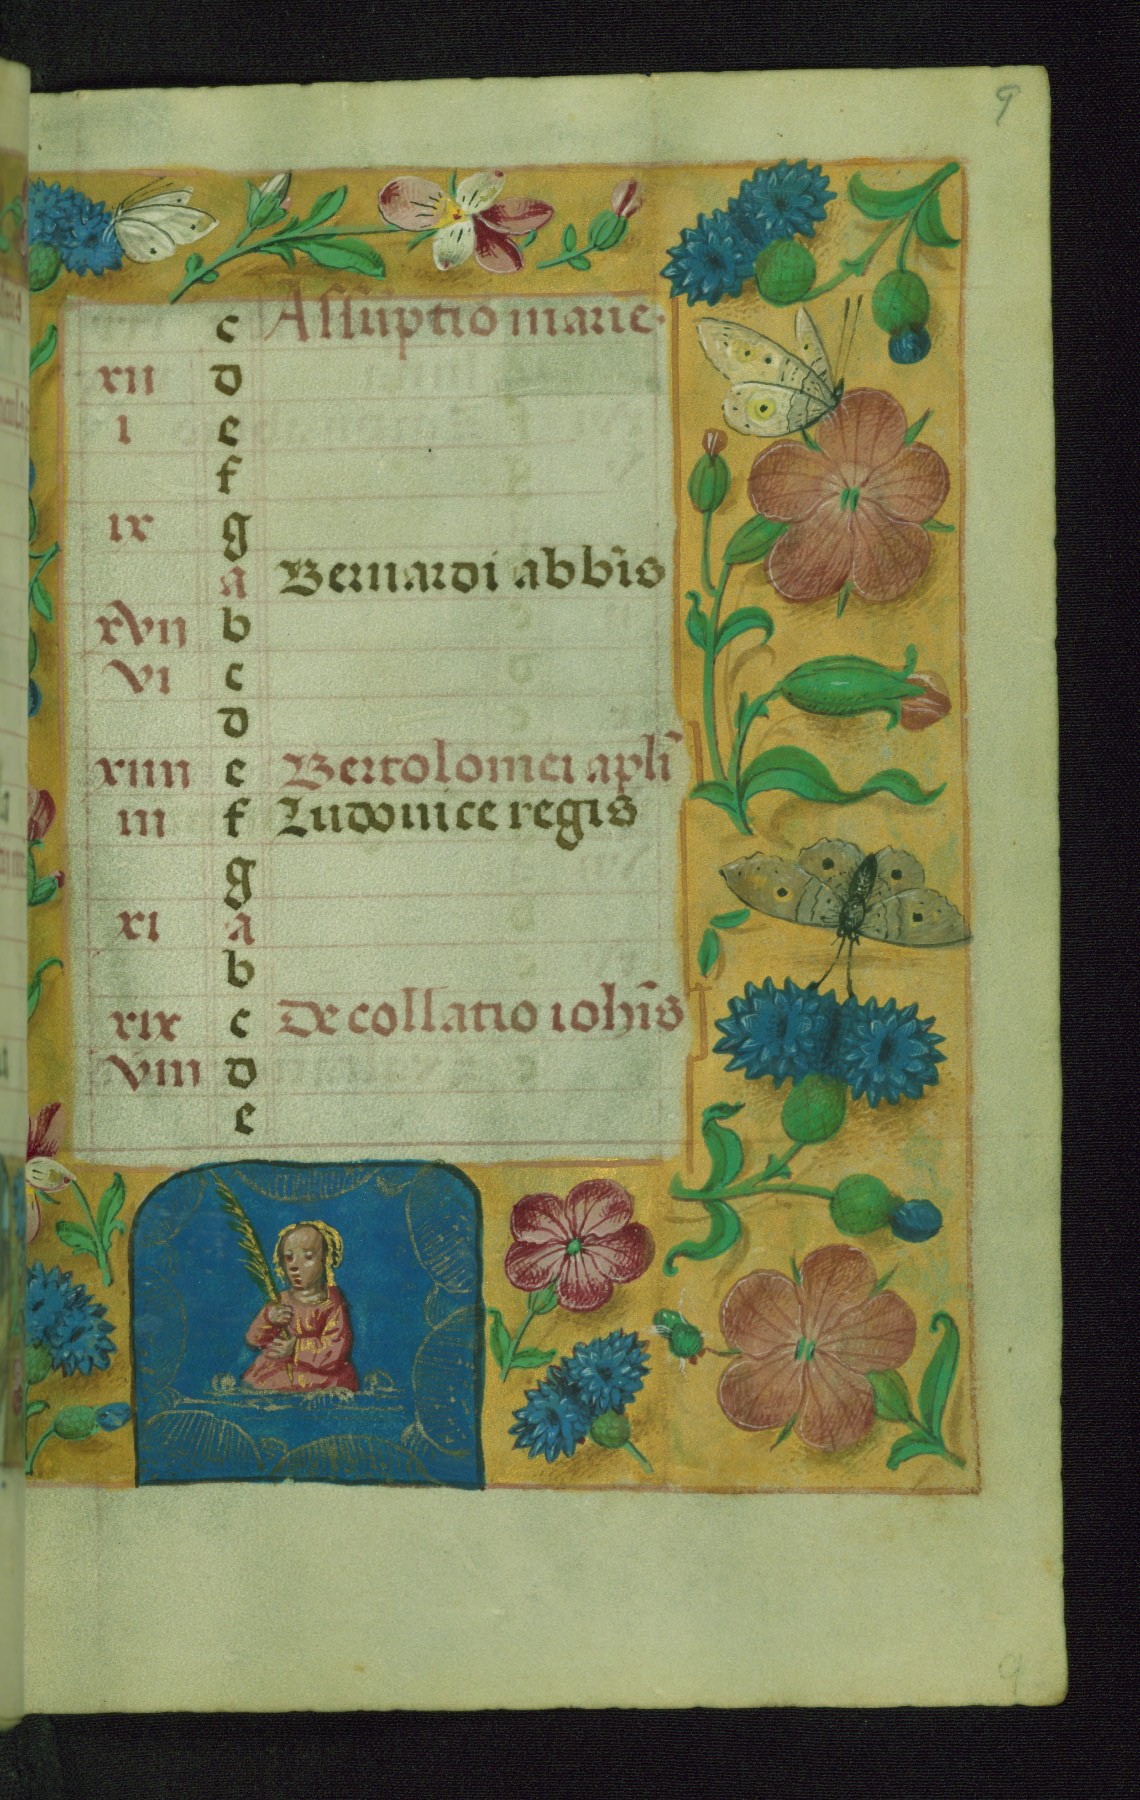 9
c Assūptio marie.
xii d
i e
f
ix g
a Bernardi abbīs
xvii b
vi c
d
xiiii e Bertolomei apli
iii f Ludouice regis
g
xi a
b
xix c De collatio iohīs
viii d
e
9